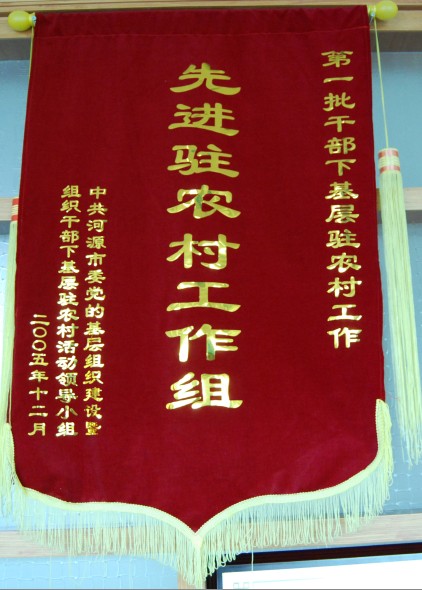 第一批干部下基层驻农村工作
先进驻农村工作组
中共河源市委党的基层组织建设暨
组织干部下基层驻农村活动领导小组
二〇〇五年十二月